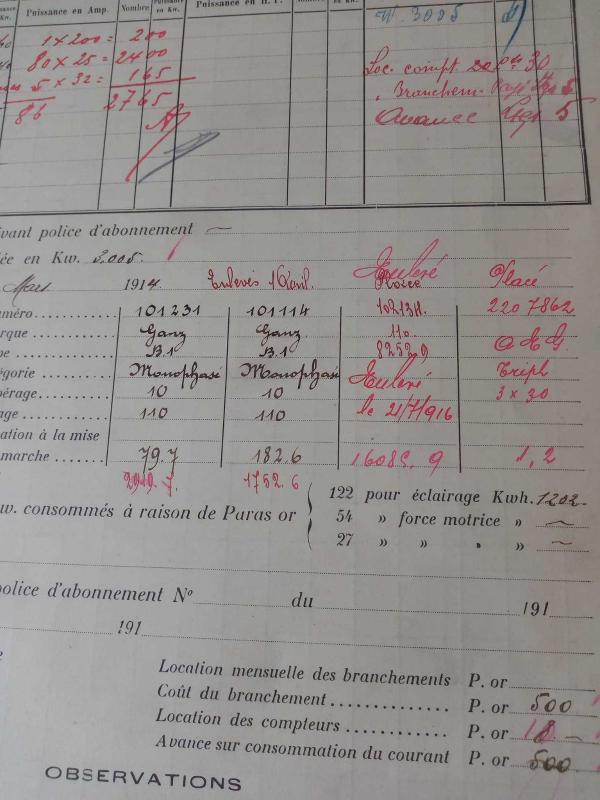 Puissance en Amp. Nombre Puissance en Kw. Puissance en
W. 3005
1 x 200 = 200
80 x 25 = 2400
5 x 32 = 165
86 2765
Loc. compt 30
Branchem. 5
Avance 5
ivant police d'abonnement
ée en Kw. 3.005.
Mars 1914 Enlevés Enlevé Placé
uméro 101231 101114 2207862
rque Ganz Ganz 110 A E G.
pe B.1 B.1 82529
égorie Monophasé Monophasé Enlevé Tripl
pérage 10 10 3 x 30
age 110 110 le 21/7/916
ation à la mise
marche 79.7 182.6 16085.9 1,2
1752.6
122 pour éclairage Kwh. 1202
w. consommés à raison de Paras or 54 » force motrice »
27 » » » »
police d'abonnement No du 191
191
Location mensuelle des branchements P. or
Coût du branchement P. or 500
Location des compteurs P. or 18
Avance sur consommation du courant P. or 500
OBSERVATIONS